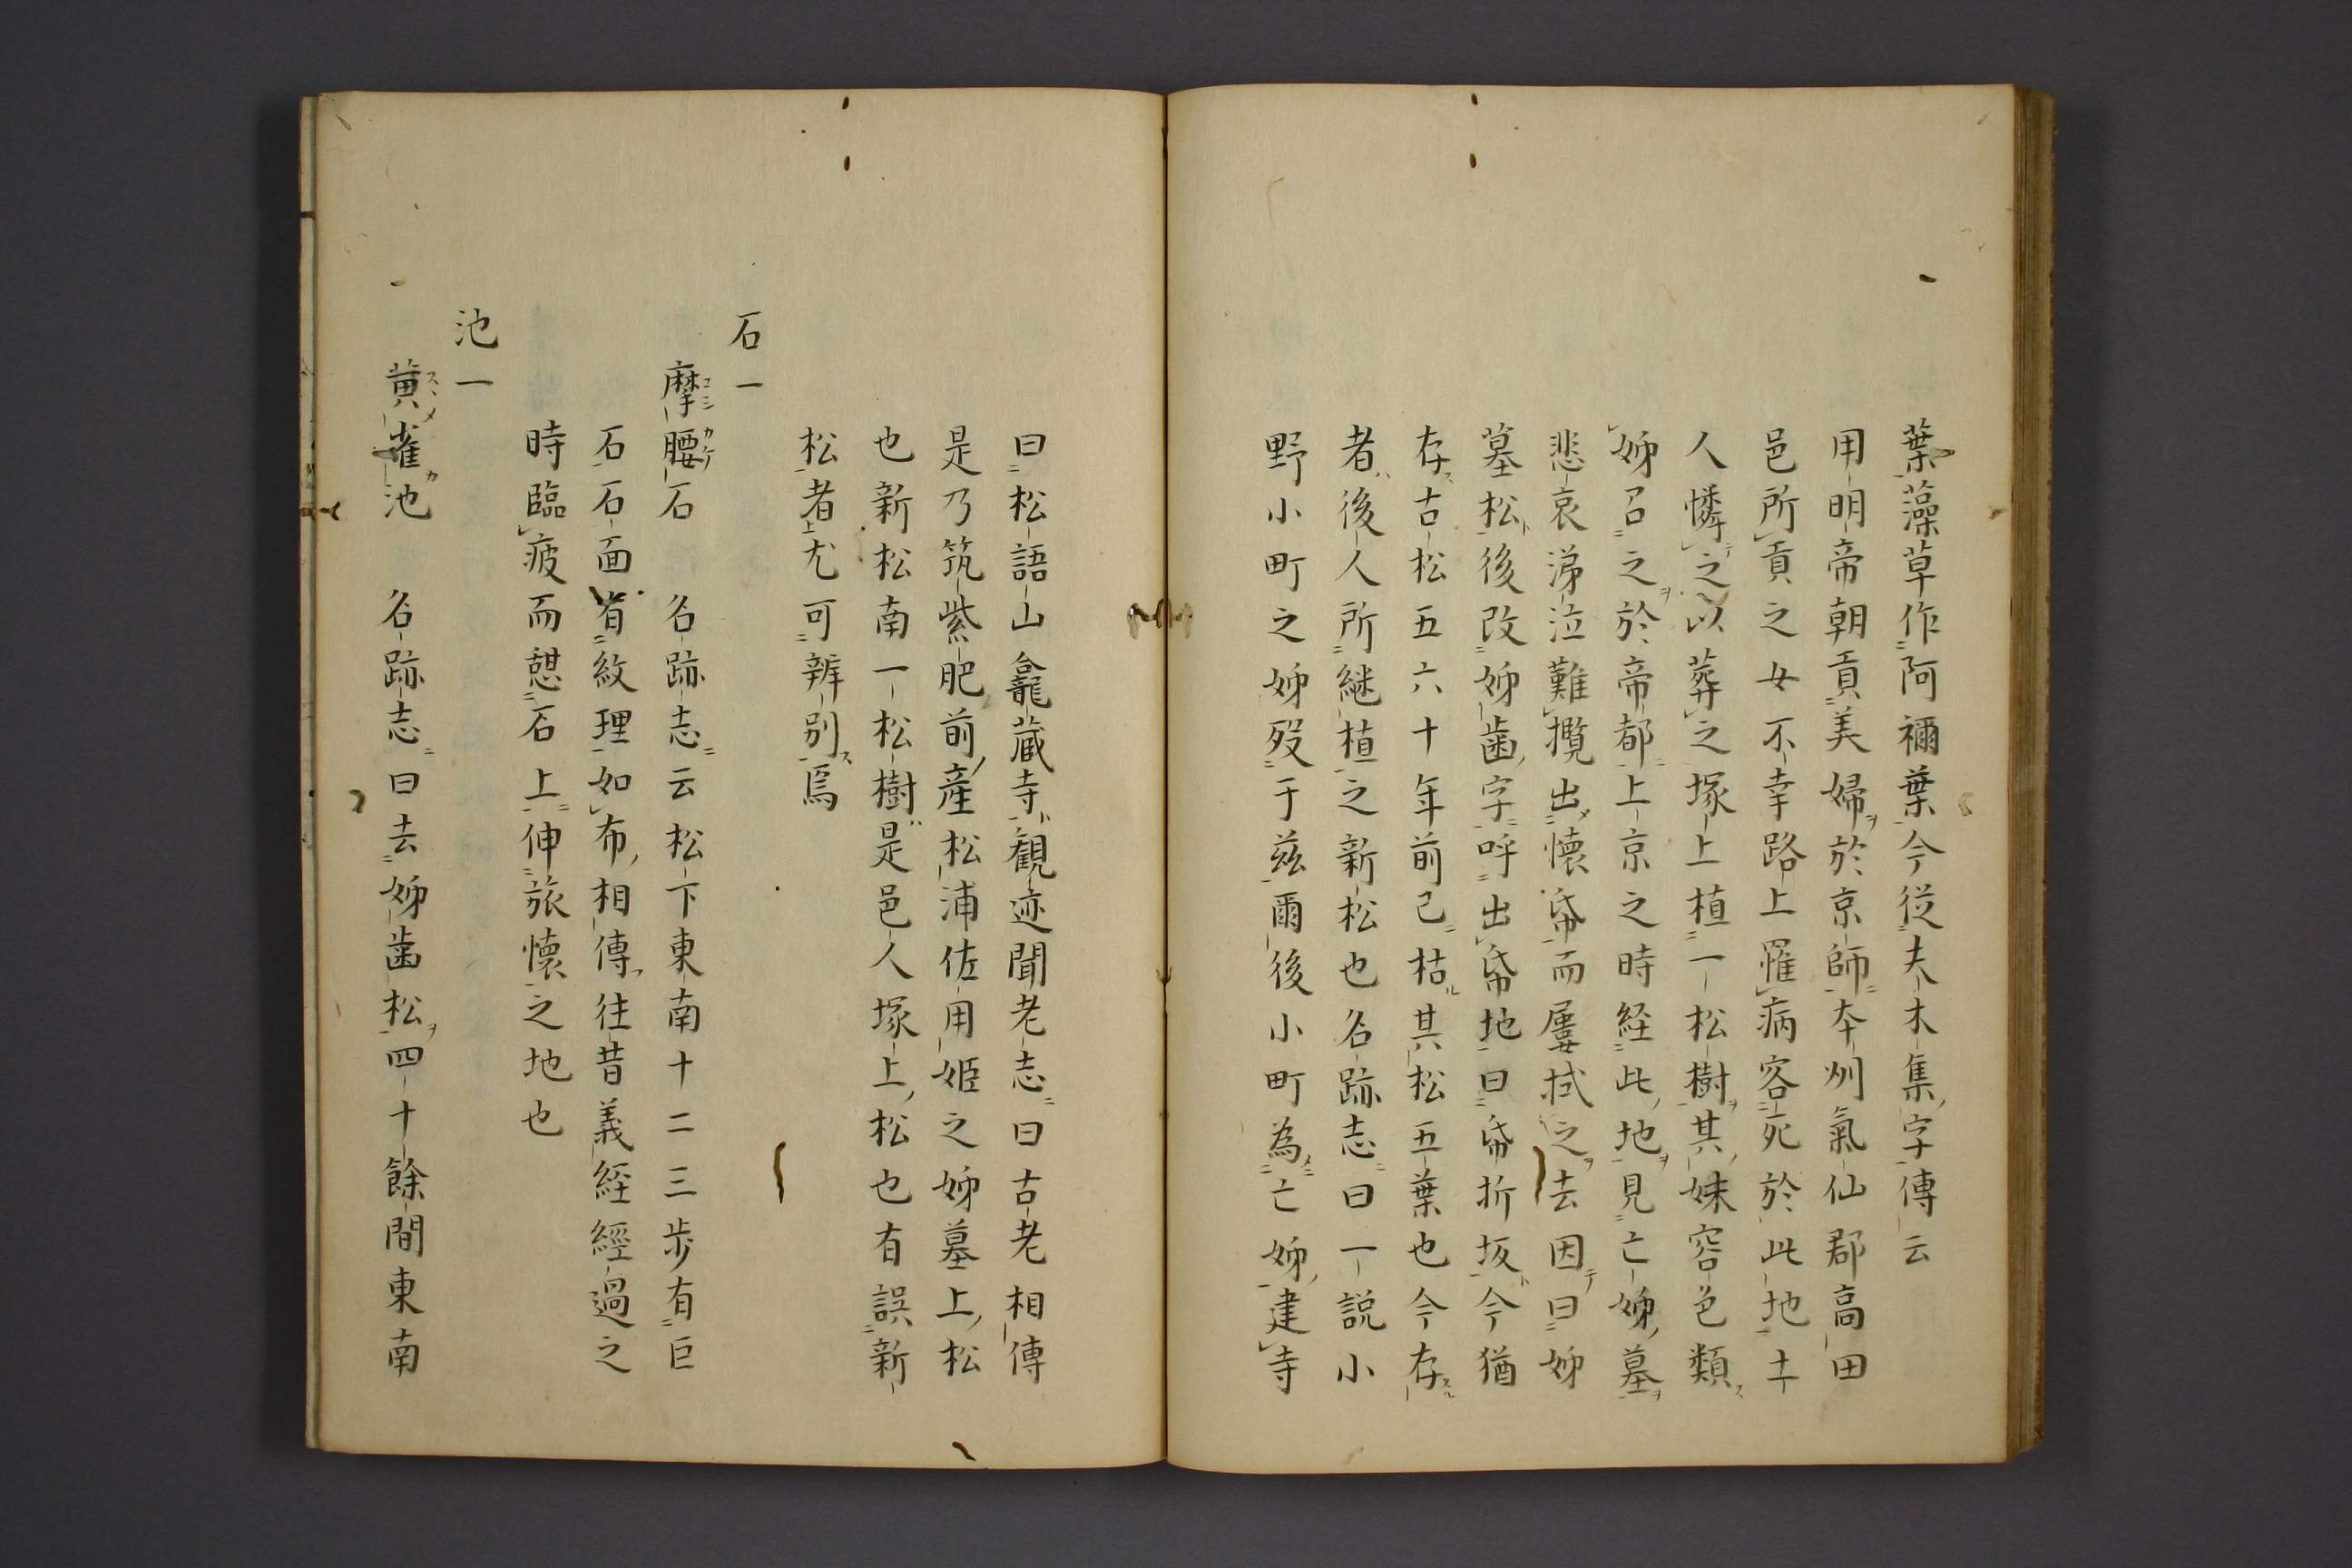 葉藻草作阿禰葉今從夫木集字傳云
用明帝朝貢美婦於京師本州氣仙郡高田
邑所貢之女不幸路上罹病客死於此地土
人憐之以葬之塚上植一松樹其妹容色類
姊召之於帝都上京之時経此地見亡姊墓
悲哀涕泣難攬出懷帋而屢拭之去因曰姊
墓松後改姊歯字呼出帋地曰帋折坂今猶
存古松五六十年前已枯其松五葉也今存
者後人所継植之新松也名跡志曰一説小
野小町之姊歿于茲爾後小町為亡姊建寺
曰松語山龕蔵寺観迹聞老志曰古老相傳
是乃筑紫肥前産松浦佐用姫之姊墓上松
也新松南一松樹是邑人塚上松也有誤新
松者尤可辨別焉
石一
摩腰石 名跡志云松下東南十二三歩有巨
石石面有紋理如布相傳往昔義経經過之
時臨疲而憇石上伸旅懐之地也
池一
黄雀池 名跡志曰去姊歯松四十餘間東南